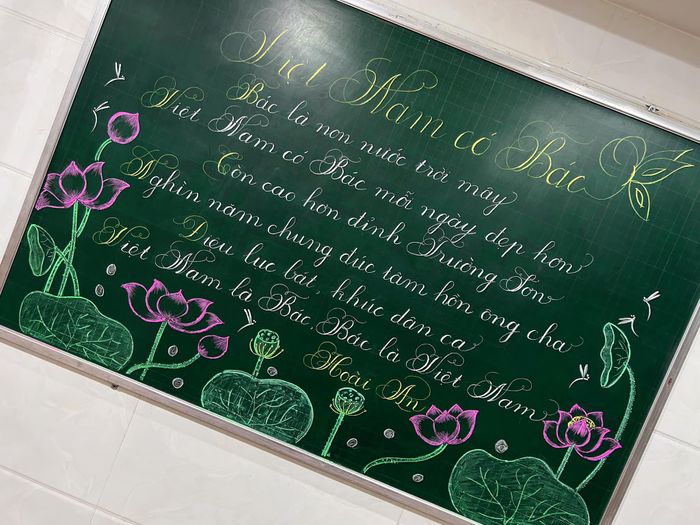 Việt Nam có Bác
Bác là non nước trời mây
Việt Nam có Bác mỗi ngày đẹp hơn
Còn cao hơn đỉnh Trường Sơn
Nghìn năm chung đúc tâm hồn ông cha
Điệu lục bát, khúc dân ca
Việt Nam là Bác, Bác là Việt Nam
Hoài An